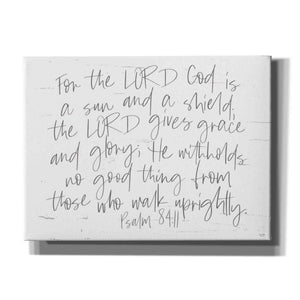 For the LORD God is
a sun and a shield,
the LORD gives grace
and glory; He withholds
no good thing from
those who walk uprightly.
Psalm 84:11